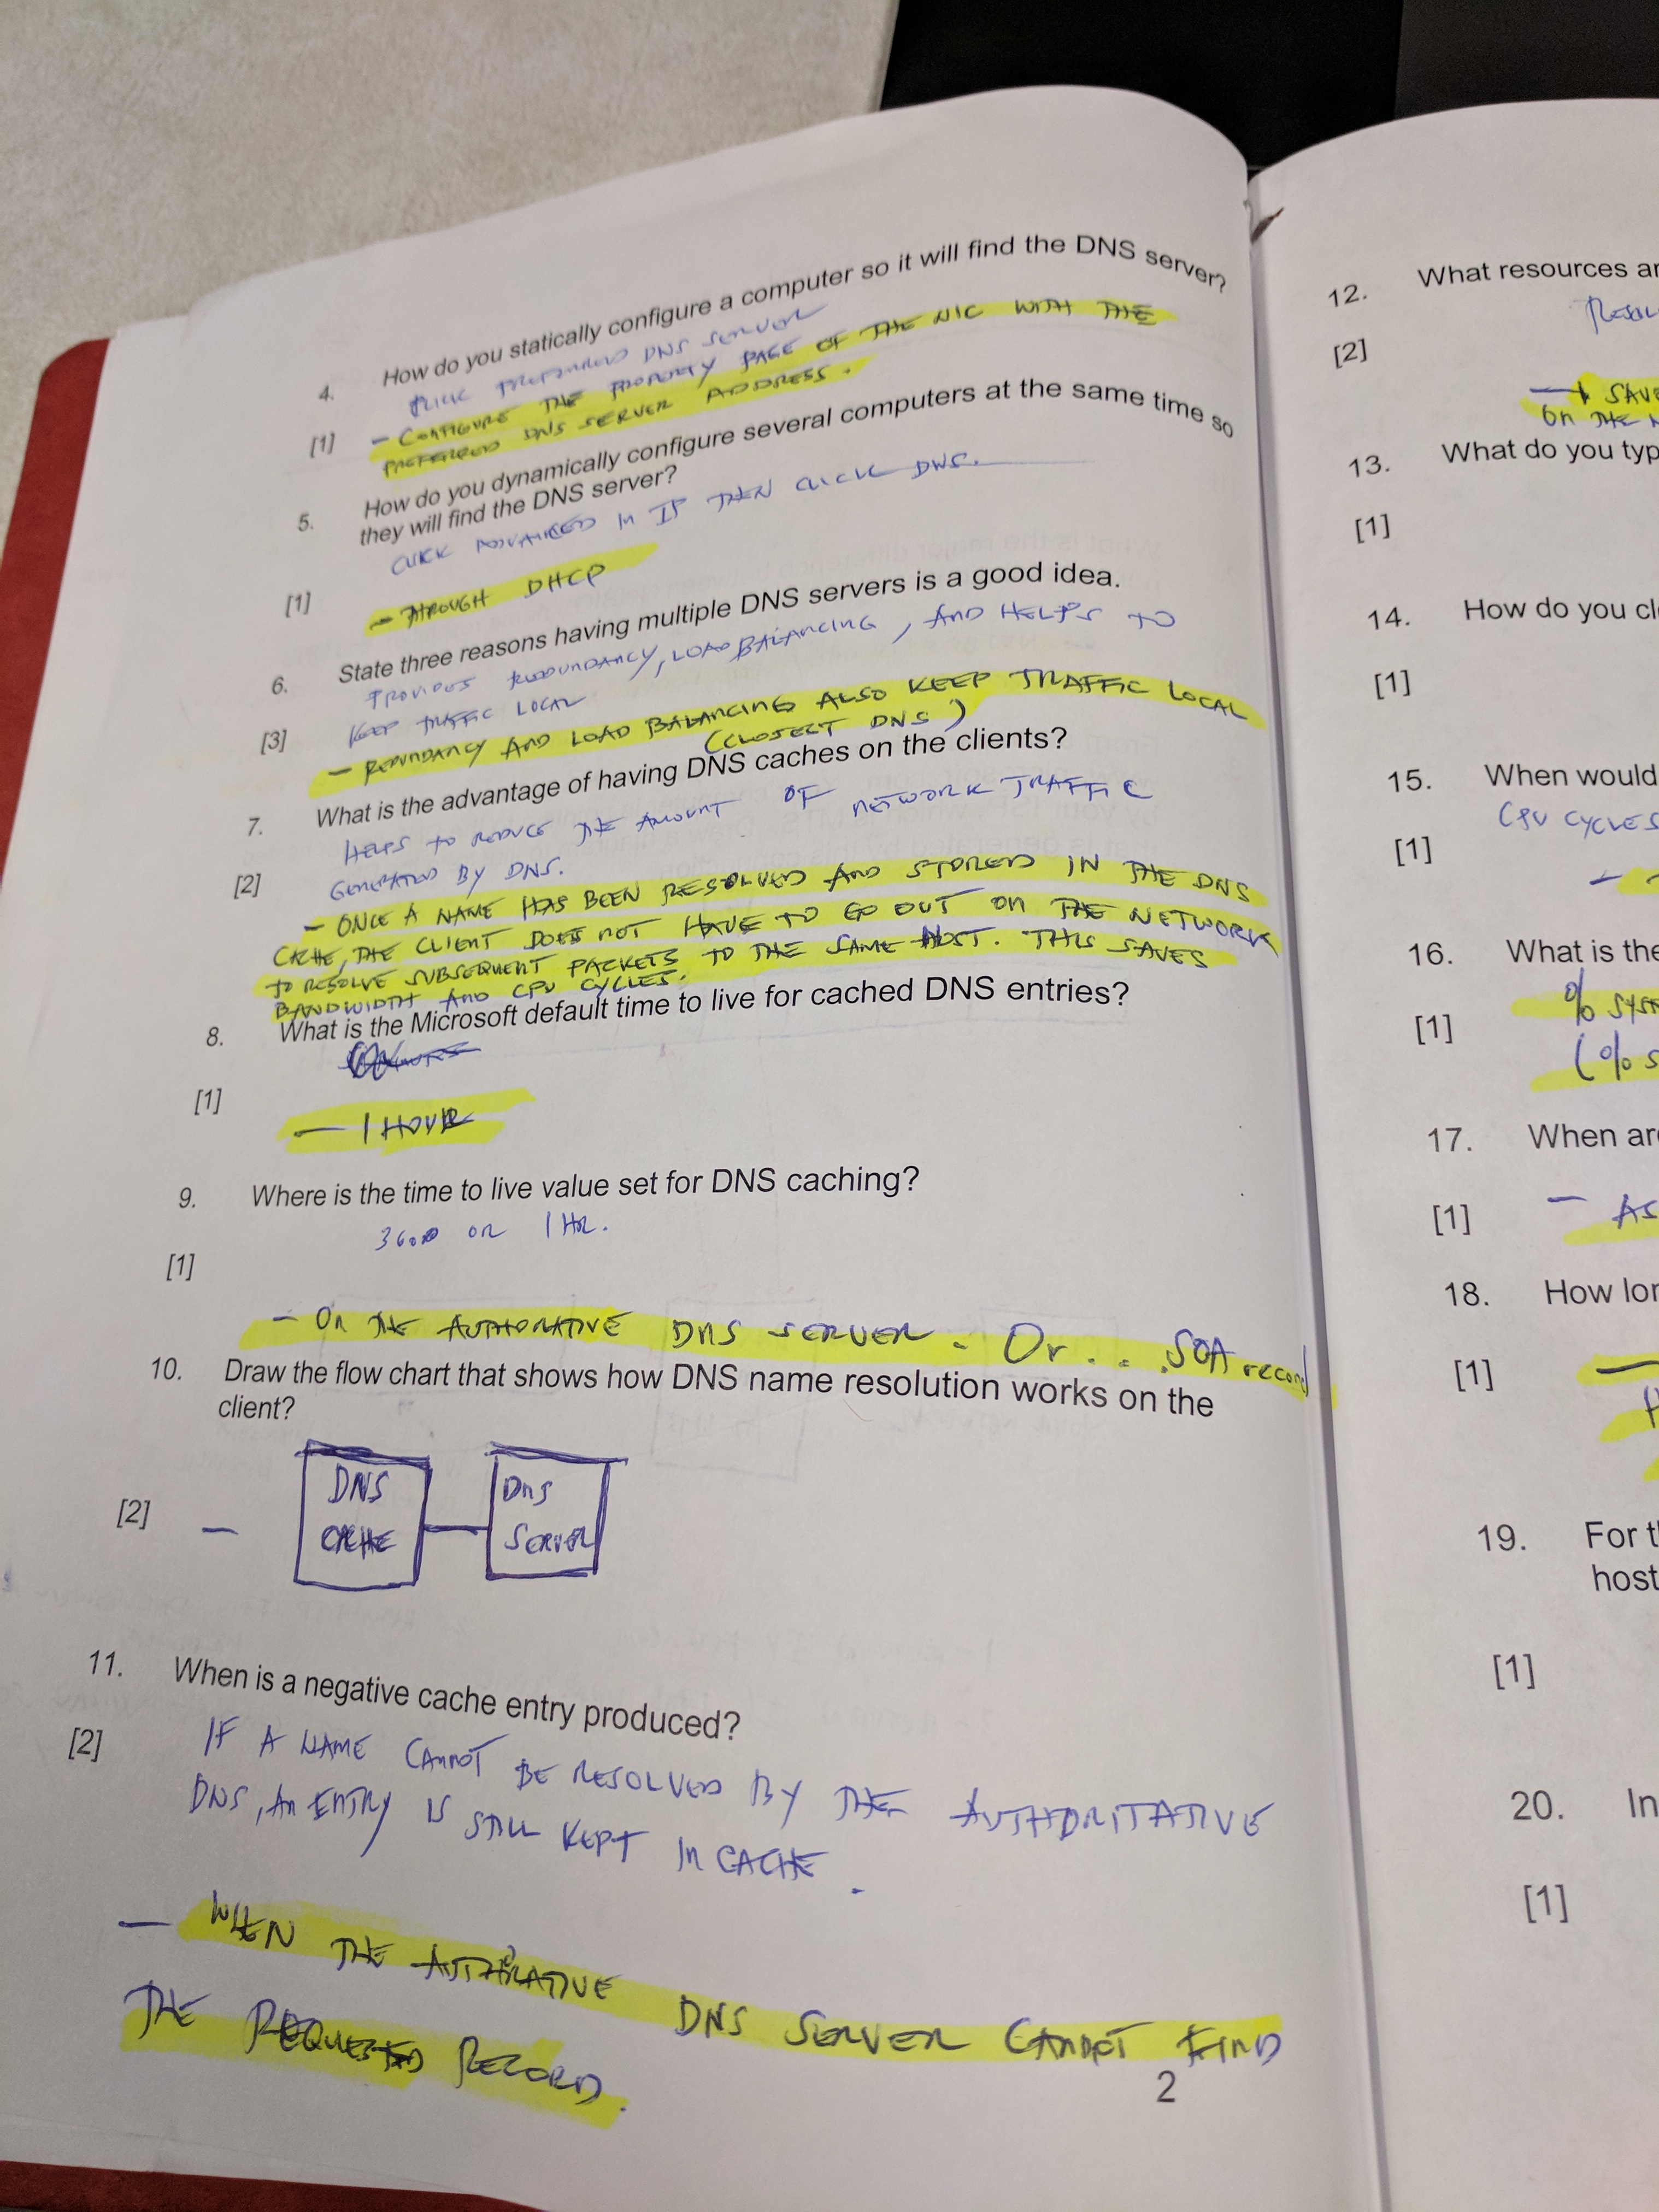 4. How do you statically configure a computer so it will find the DNS server?
PREFERRED DNS SERVER
[1] - CONFIGURE THE PROPERTY PAGE OF THE NIC WITH THE
PREFERRED DNS SERVER ADDRESS.
5. How do you dynamically configure several computers at the same time so
they will find the DNS server?
CLICK ADVANCED IN IP THEN CLICK DNS.
[1] - THROUGH DHCP
6. State three reasons having multiple DNS servers is a good idea.
PROVIDES REDUNDANCY, LOAD BALANCING, AND HELPS TO
[3] KEEP TRAFFIC LOCAL
- REDUNDANCY AND LOAD BALANCING ALSO KEEP TRAFFIC LOCAL
(CLOSECT DNS)
7. What is the advantage of having DNS caches on the clients?
HELPS TO REDUCE THE AMOUNT OF NETWORK TRAFFIC
[2] GENERATED BY DNS.
- ONCE A NAME HAS BEEN RESOLVED AND STORED IN THE DNS
CACHE, THE CLIENT DOES NOT HAVE TO GO OUT ON THE NETWORK
TO RESOLVE SUBSEQUENT PACKETS TO THE SAME HOST. THIS SAVES
BANDWIDTH AND CPU CYCLES.
8. What is the Microsoft default time to live for cached DNS entries?
[1]
- 1 HOUR
9. Where is the time to live value set for DNS caching?
3600 OR 1 HR.
[1]
- ON THE AUTHORATIVE DNS SERVER - Or . . . SOA record
10. Draw the flow chart that shows how DNS name resolution works on the
client?
[2] -
DNS
CACHE
Dns
SERVER
11. When is a negative cache entry produced?
[2] IF A NAME CANNOT BE RESOLVED BY THE AUTHORITATIVE
DNS, AN ENTRY IS STILL KEPT IN CACHE.
- WHEN THE AUTHORATIVE DNS SERVER CANNOT FIND
THE REQUESTED RECORD.
2
12. What resources ar
[2]
SAVE
ON THE N
13. What do you typ
[1]
14. How do you cl
[1]
15. When would
CPU CYCLES
[1] -
16. What is the
% SYST
[1]
(% S
17. When are
[1] - AS
18. How lon
[1] -
19. For t
host
[1]
20. In
[1]